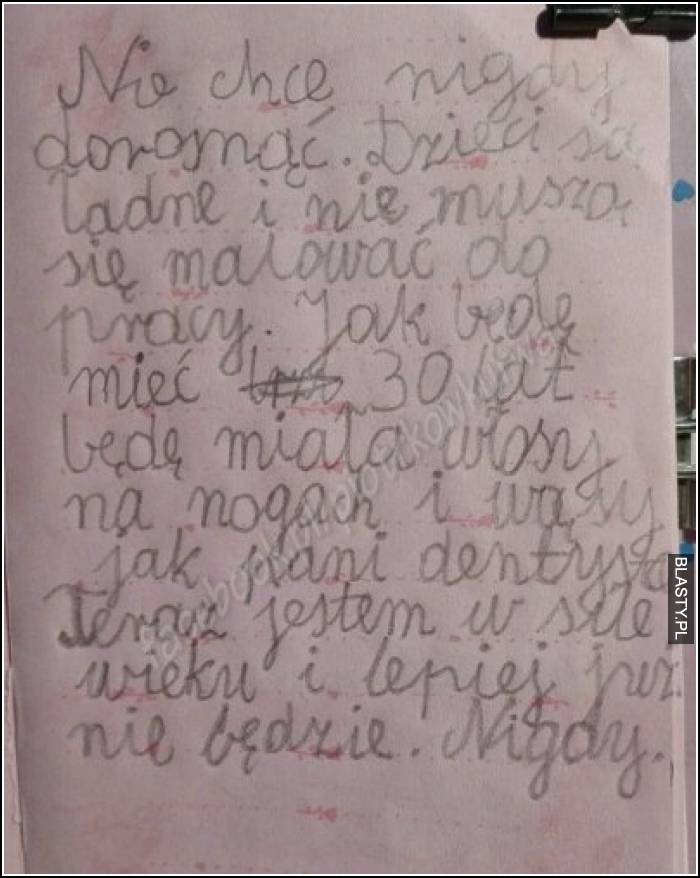 Nie chcę nigdy
dorosnąć. Dzieci są
ładne i nie muszą
się malować do
pracy. Jak będę
mieć 30 lat
będę miała włosy
na nogach i wąsy
jak pani dentysta
Teraz jestem w sile
wieku i lepiej już
nie będzie. Nigdy.
BLASTY.PL